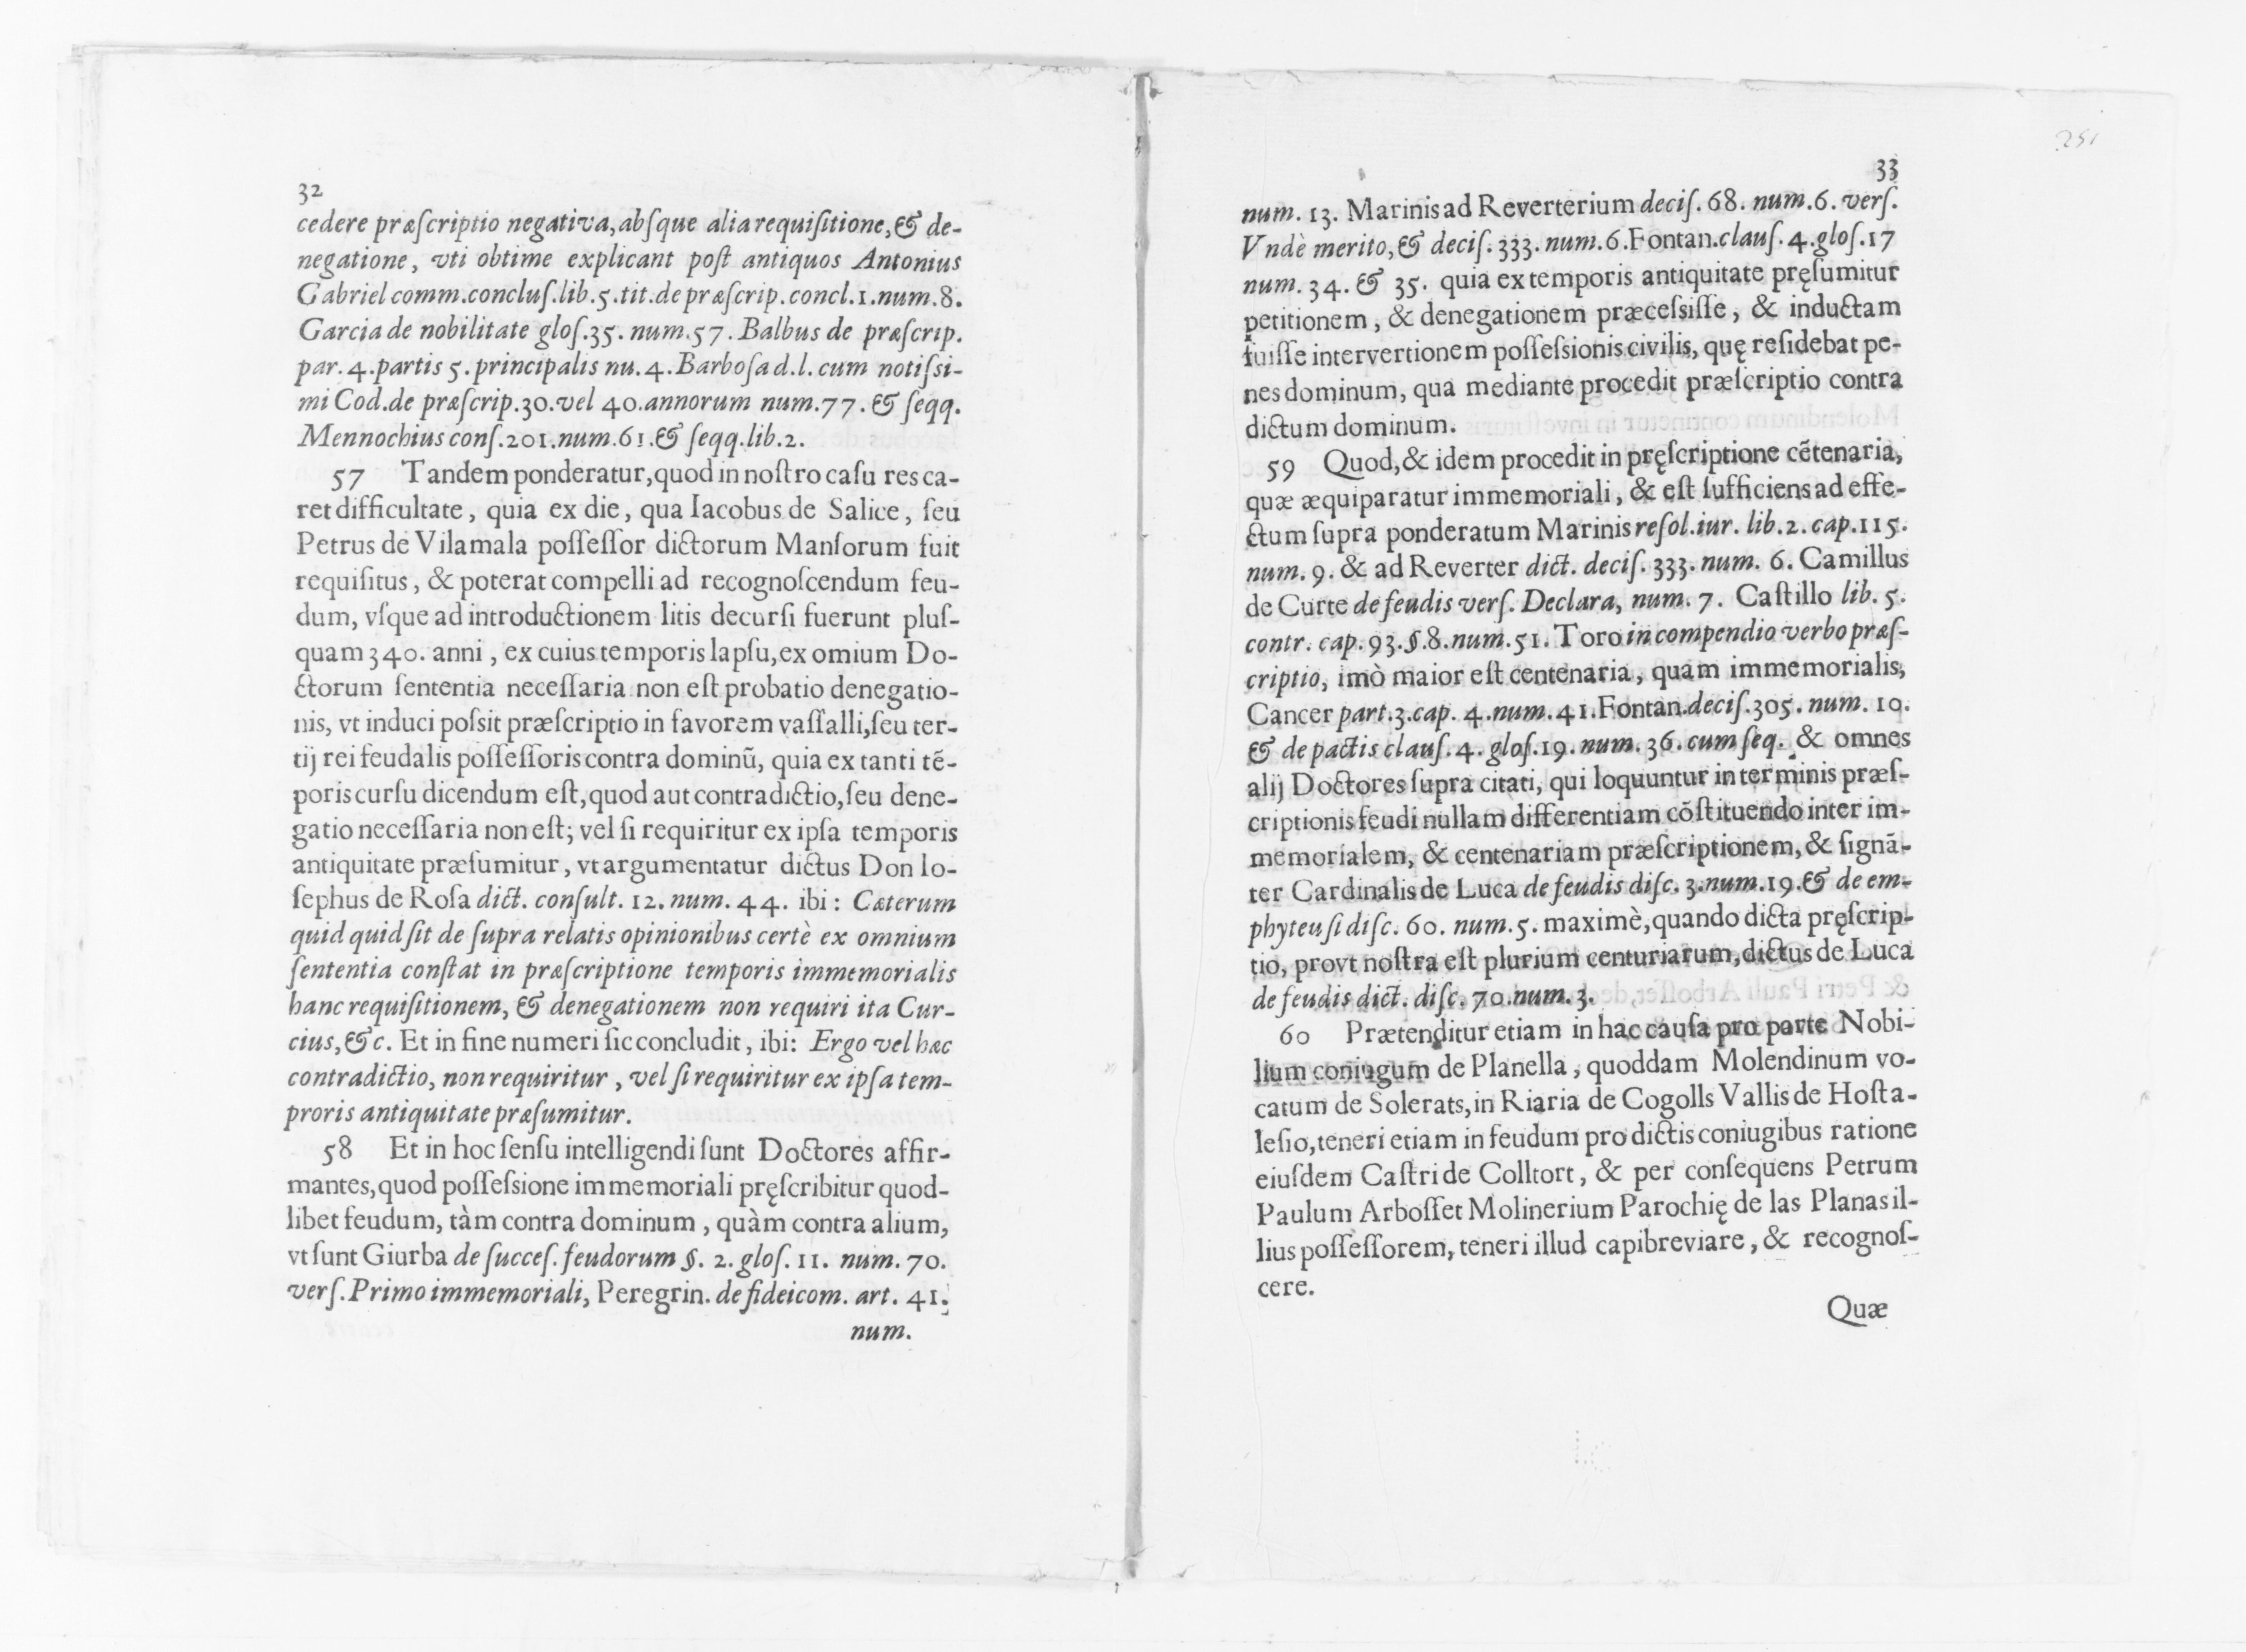 32
cedere præſcriptio negativa, abſque alia requiſitione, & de-
negatione, vti obtime explicant poſt antiquos Antonius
Gabriel comm. concluſ. lib. 5. tit. de præſcrip. concl. 1. num. 8.
Garcia de nobilitate gloſ. 35. num. 57. Balbus de præſcrip.
par. 4. partis 5. principalis nu. 4. Barboſa d. l. cum notiſsi-
mi Cod. de præſcrip. 30. vel 40. annorum num. 77. & ſeqq.
Mennochius conſ. 201. num. 61. & ſeqq. lib. 2.
57 Tandem ponderatur, quod in noſtro caſu res ca-
ret difficultate, quia ex die, qua Iacobus de Salice, ſeu
Petrus de Vilamala poſſeſſor dictorum Manſorum fuit
requiſitus, & poterat compelli ad recognoſcendum feu-
dum, vſque ad introductionem litis decurſi fuerunt pluſ-
quam 340. anni, ex cuius temporis lapſu, ex omium Do-
ctorum ſententia neceſſaria non eſt probatio denegatio-
nis, vt induci poſsit præſcriptio in favorem vaſſalli, ſeu ter-
tij rei feudalis poſſeſſoris contra dominũ, quia ex tanti tẽ-
poris curſu dicendum eſt, quod aut contradictio, ſeu dene-
gatio neceſſaria non eſt; vel ſi requiritur ex ipſa temporis
antiquitate præſumitur, vt argumentatur dictus Don Io-
ſephus de Roſa dict. conſult. 12. num. 44. ibi: Cæterum
quid quid ſit de ſupra relatis opinionibus certè ex omnium
ſententia conſtat in præſcriptione temporis immemorialis
hanc requiſitionem, & denegationem non requiri ita Cur-
cius, &c. Et in fine numeri ſic concludit, ibi: Ergo vel hæc
contradictio, non requiritur, vel ſi requiritur ex ipſa tem-
proris antiquitate præſumitur.
58 Et in hoc ſenſu intelligendi ſunt Doctores affir-
mantes, quod poſſeſsione immemoriali pręſcribitur quod-
libet feudum, tàm contra dominum, quàm contra alium,
vt ſunt Giurba de ſucceſ. feudorum §. 2. gloſ. 11. num. 70.
verſ. Primo immemoriali, Peregrin. de fideicom. art. 41.
num.
251
33
num. 13. Marinis ad Reverterium deciſ. 68. num. 6. verſ.
Vndè merito, & deciſ. 333. num. 6. Fontan. clauſ. 4. gloſ. 17
num. 34. & 35. quia ex temporis antiquitate pręſumitur
petitionem, & denegationem præceſsiſſe, & inductam
fuiſſe intervertionem poſſeſsionis civilis, quę reſidebat pe-
nes dominum, qua mediante procedit præſcriptio contra
dictum dominum.
59 Quod, & idem procedit in pręſcriptione cẽtenaria,
quæ æquiparatur immemoriali, & eſt ſufficiens ad effe-
ctum ſupra ponderatum Marinis reſol. iur. lib. 2. cap. 115.
num. 9. & ad Reverter dict. deciſ. 333. num. 6. Camillus
de Curte de feudis verſ. Declara, num. 7. Caſtillo lib. 5.
contr. cap. 93. §. 8. num. 51. Toro in compendio verbo præſ-
criptio, imò maior eſt centenaria, quam immemorialis,
Cancer part. 3. cap. 4. num. 41. Fontan. deciſ. 305. num. 10.
& de pactis clauſ. 4. gloſ. 19. num. 36. cum ſeq. & omnes
alij Doctores ſupra citati, qui loquuntur in terminis præſ-
criptionis feudi nullam differentiam cõſtituendo inter im-
memorialem, & centenariam præſcriptionem, & ſignã-
ter Cardinalis de Luca de feudis diſc. 3. num. 19. & de em-
phyteuſi diſc. 60. num. 5. maximè, quando dicta pręſcrip-
tio, provt noſtra eſt plurium centuriarum, dictus de Luca
de feudis dict. diſc. 70. num. 3.
60 Prætenditur etiam in hac cauſa pro parte Nobi-
lium coniugum de Planella, quoddam Molendinum vo-
catum de Solerats, in Riaria de Cogolls Vallis de Hoſta-
leſio, teneri etiam in feudum pro dictis coniugibus ratione
eiuſdem Caſtri de Colltort, & per conſequens Petrum
Paulum Arboſſet Molinerium Parochię de las Planas il-
lius poſſeſſorem, teneri illud capibreviare, & recognoſ-
cere.
Quæ